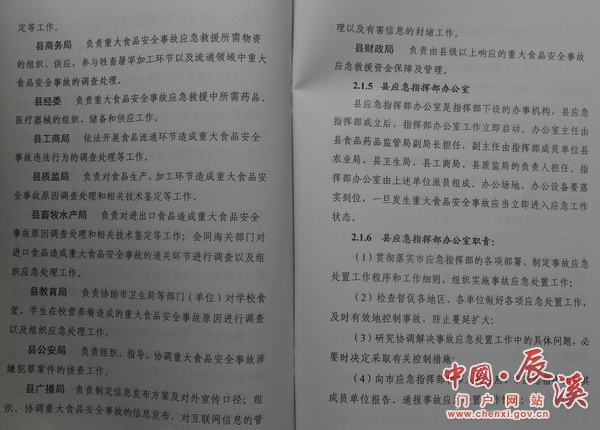 定等工作。
县商务局 负责重大食品安全事故应急救援所需物资
的组织、供应，参与牲畜屠宰加工环节以及流通领域中重大
食品安全事故的调查处理。
县经委 负责重大食品安全事故应急救援中所需药品、
医疗器械的组织、储备和供应工作。
县工商局 依法开展食品流通环节造成重大食品安全
事故违法行为的调查处理等工作。
县质监局 负责对食品生产、加工环节造成重大食品安
全事故原因调查处理和相关技术鉴定等工作。
县畜牧水产局 负责对进出口食品造成重大食品安全
事故原因调查处理和相关技术鉴定等工作；会同海关部门对
进口食品造成重大食品安全事故的通关环节进行调查以及组
织应急处理工作。
县教育局 负责协助市卫生局等部门（单位）对学校食
堂、学生在校营养餐造成的重大食品安全事故原因进行调查
以及组织应急处理工作。
县公安局 负责组织、指导、协调重大食品安全事故涉
嫌犯罪案件的侦查工作。
县广播局 负责制定信息发布方案及对外宣传口径；组
织、协调重大食品安全事故的信息发布，对互联网信息的管
理以及有害信息的封堵工作。
县财政局 负责由县级以上响应的重大食品安全事故
应急救援资金保障及管理。
2.1.5 县应急指挥部办公室
县应急指挥部办公室是指挥部下设的办事机构，县应急
指挥部成立后，指挥部办公室工作立即启动。办公室主任由
县食品药品监管局副局长担任，副主任由指挥部成员单位县
农业局、县卫生局、县工商局、县质监局的负责人担任。指
挥部办公室由上述单位派员组成。办公场地、办公设备要落
实到位，一旦发生重大食品安全事故应当立即进入应急工作
状态。
2.1.6 县应急指挥部办公室职责：
（1）贯彻落实市应急指挥部的各项部署，制定事故应急
处置工作程序和工作细则，组织实施事故应急处置工作；
（2）检查督促各地区、各单位做好各项应急处置工作，
及时有效地控制事故，防止蔓延扩大；
（3）研究协调解决事故应急处置工作中的具体问题，必
要时决定采取有关控制措施；
（4）向市应急指挥部
成员单位报告、通报事故应急处置工作
中國·辰溪
门户网站 www.chenxi.gov.cn